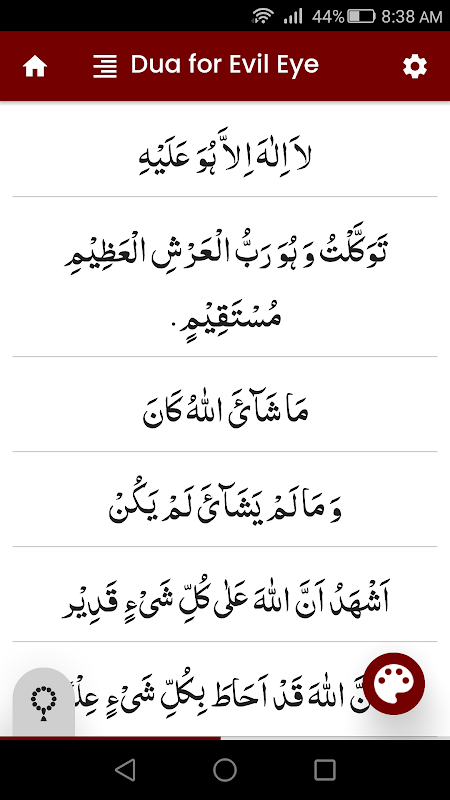 44% 8:38 AM
Dua for Evil Eye
لاَ اِلٰهَ اِلاَّ هُوَ عَلَيْهِ
تَوَكَّلْتُ وَ هُوَ رَبُّ الْعَرْشِ الْعَظِيْمِ
مُسْتَقِيْمٍ.
مَا شَآئَ اللهُ كَانَ
وَ مَا لَمْ يَشَآئَ لَمْ يَكُنْ
اَشْهَدُ اَنَّ اللهَ عَلٰى كُلِّ شَىْءٍ قَدِيْر
اللهَ قَدْ اَحَاطَ بِكُلِّ شَىْءٍ